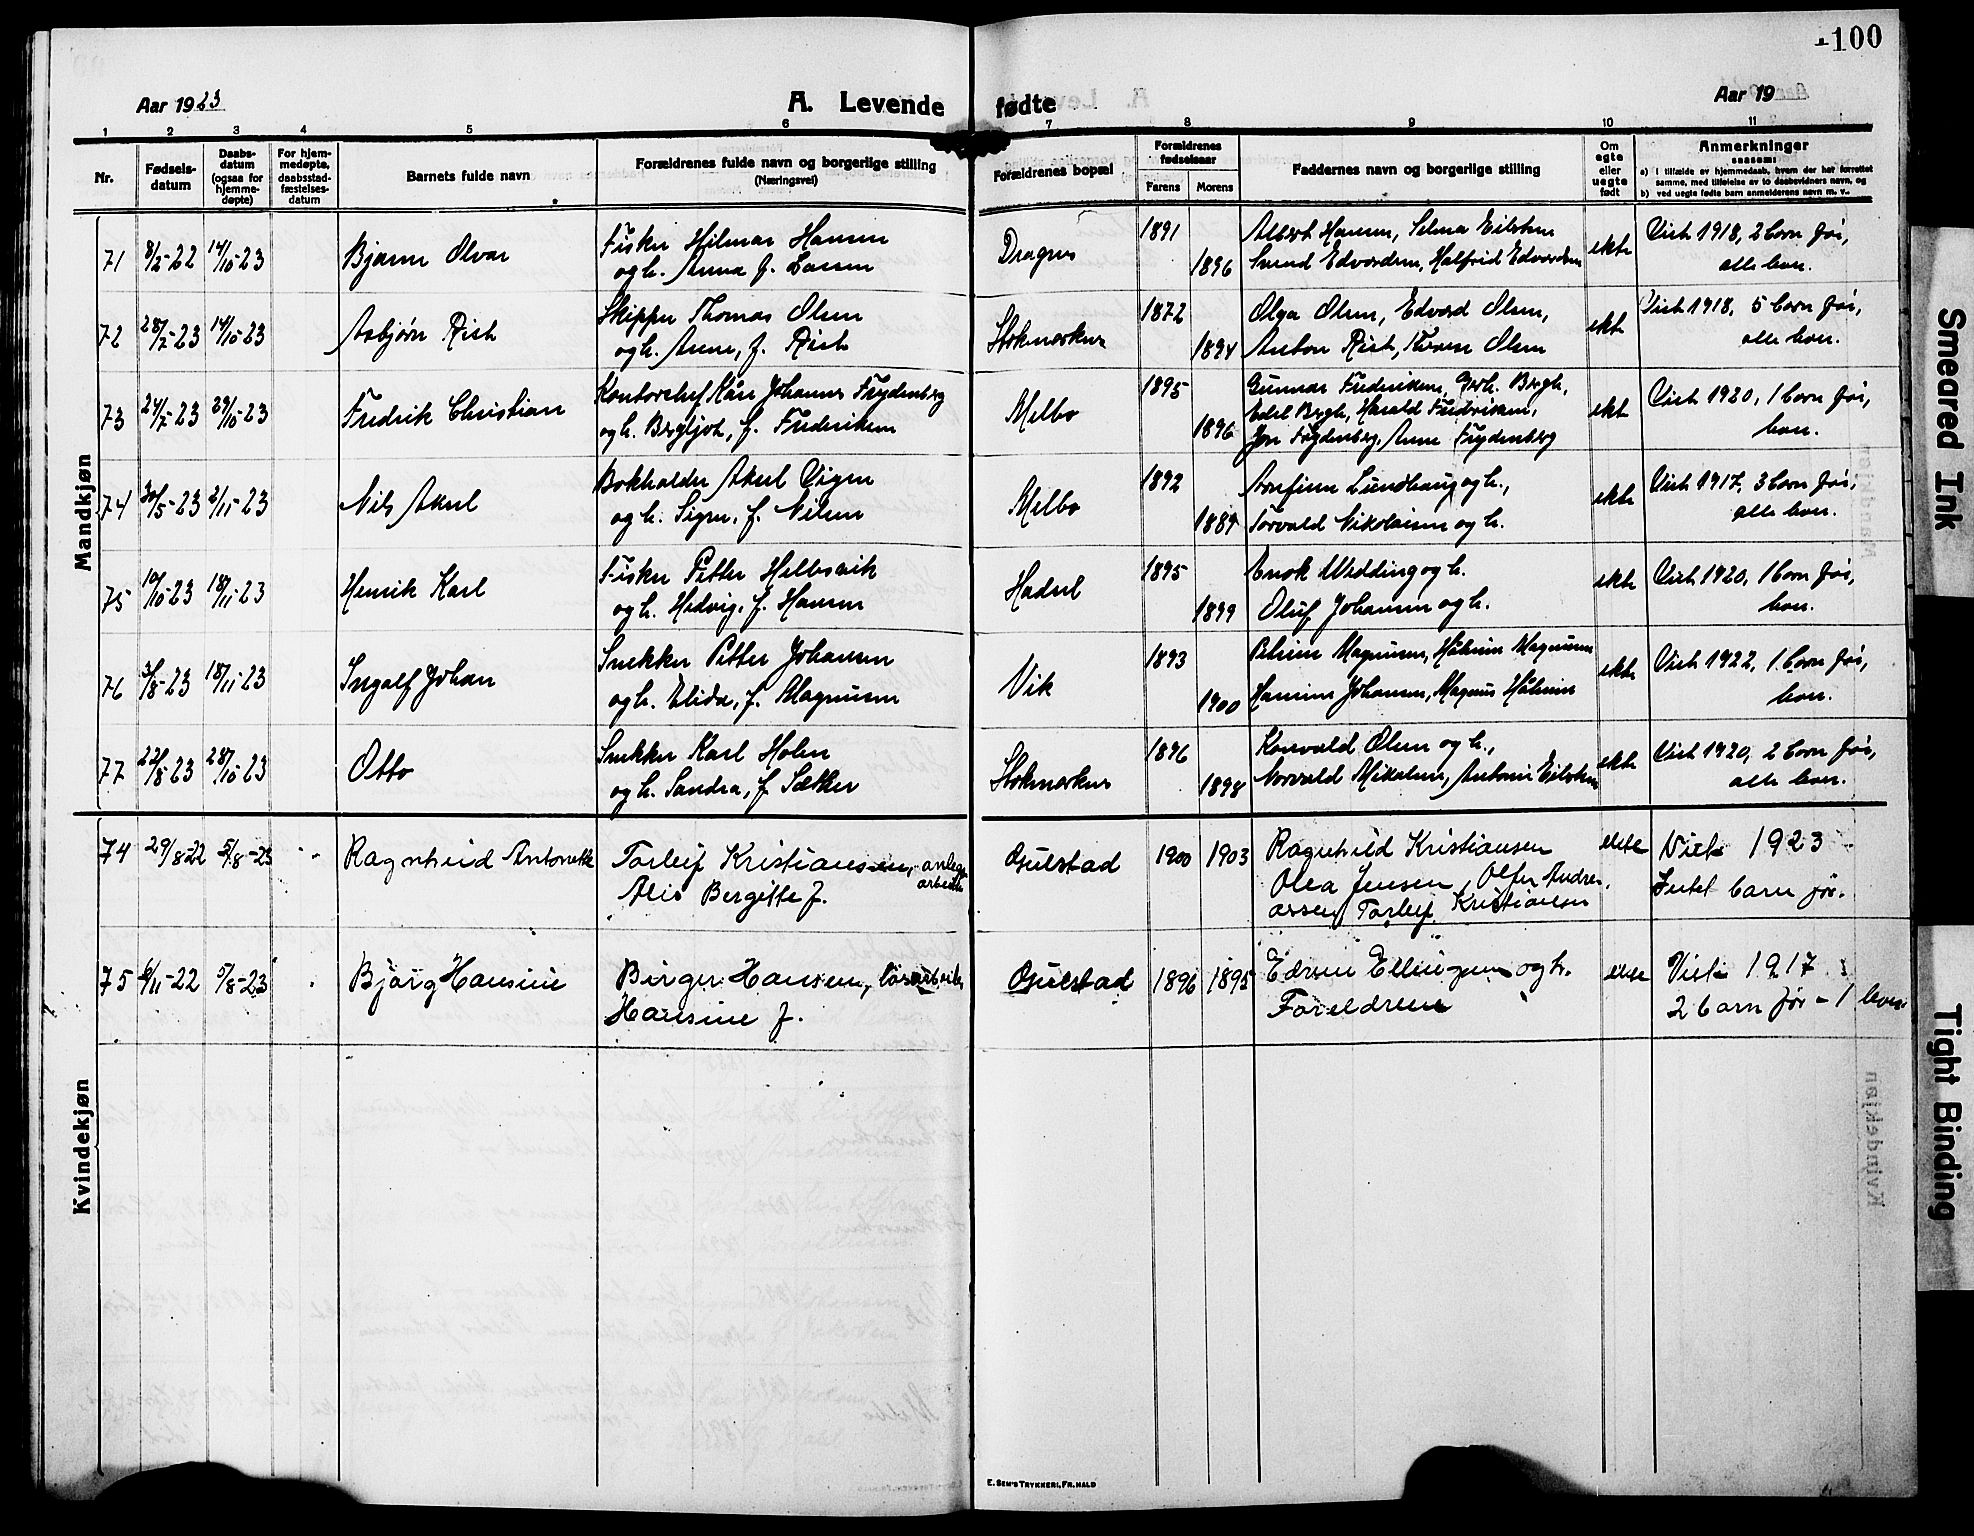 100
Aar 1923
A. Levende fødte
Aar 19
1 2 3 4 5 6 7 8 9 10 11
Nr.
Fødsels-
datum
Daabs-
datum
(ogsaa for
hjemme-
døpte)
For hjem-
medøpte,
daabsstad-
fæstelses-
datum
Barnets fulde navn
Forældrenes fulde navn og borgerlige stilling
(Næringsvei)
Forældrenes bopæl
Forældrenes
fødselsaar
Farens Morens
Faddernes navn og borgerlige stilling
Om
egte
eller
uegte
født
Anmerkninger
saasom:
a) i tilfælde av hjemmedaab, hvem der har forrettet
samme, med tilføielse av to daabsvidners navn, og
b) ved uegte fødte barn anmelderens navn m. v.
Mandkjøn
71 8/2-22 14/10-23 Bjarne Olvar
Fisker Hilmar Hansen
og h. Anna f. Larsen
Dragnes 1891 1896
Albert Hansen, Selma Eilertsen
Svend Edvardsen, Halfrid Edvardsen
ekte
Viet 1918, 2 barn før,
alle lever.
72 28/7-23 14/10-23 Asbjørn Rist
Skipper Thomas Olsen
og h. Anne, f. Rist
Stokmarknes 1872 1894
Olga Olsen, Edvard Olsen,
Anton Rist, Olsen
ekte
Viet 1918, 5 barn før,
alle lever.
73 24/7-23 29/10-23 Fredrik Christian
Kontorchef Kåre Johannes Frydenberg
og h. Bergljot, f. Fredriksen
Melbo 1895 1896
Gunnar Fredriksen, Gerh. Bergh,
Edel Bergh, Harald Fredriksen,
Jon Frydenberg, Anne Frydenberg
ekte
Viet 1920, 1 barn før,
lever.
74 30/5-23 2/11-23 Nils Aksel
Bokholder Aksel Vigen
og h. Signe, f. Nilsen
Melbo 1892 1889
Arnfinn Lundhaug og h.,
Torvald Nikolaisen og h.
ekte
Viet 1917, 3 barn før,
alle lever.
75 10/10-23 18/11-23 Henrik Karl
Fisker Petter Hellesvik
og h. Hedvig, f. Hansen
Hadsel 1895 1899
Enok Widding og h.
Oluf Johansen og h.
ekte
Viet 1920, 1 barn før,
lever.
76 3/8-23 18/11-23 Ingolf Johan
Snekker Petter Johansen
og h. Elida, f. Magnusen
Vik 1893 1900
Petrine Magnusen, Magnusen
Hansine Johansen, Magnus
ekte
Viet 1922, 1 barn før,
lever.
77 22/8-23 28/10-23 Otto
Snekker Karl Holen
og h. Sandra, f. Sætter
Stokmarknes 1896 1898
Konvald Olsen og h.,
Norvald Mikalsen, Antonie Eilertsen
ekte
Viet 1920, 2 barn før,
alle lever.
Kvindekjøn
74 29/8-22 5/8-23 Ragnhild Antonette
Torleif Kristiansen, anlegs
arbeider
Alis Bergitte f.
Gulstad 1900 1903
Ragnhild Kristiansen
Olea Jensen, Olfer Andre-
assen, Torleif Kristiansen
ekte
Viet 1923
Intet barn før.
75 6/11-22 5/8-23 Bjørg Hansine
Birger Hansen, løsarbeider
Hansine f.
Gulstad 1896 1895
Edvin Ellingsen og h.
Foreldrene
ekte
Viet 1917
2 barn før - 1 lever
E. Sem's Trykkeri, Fr.hald
Smeared Ink
Tight Binding